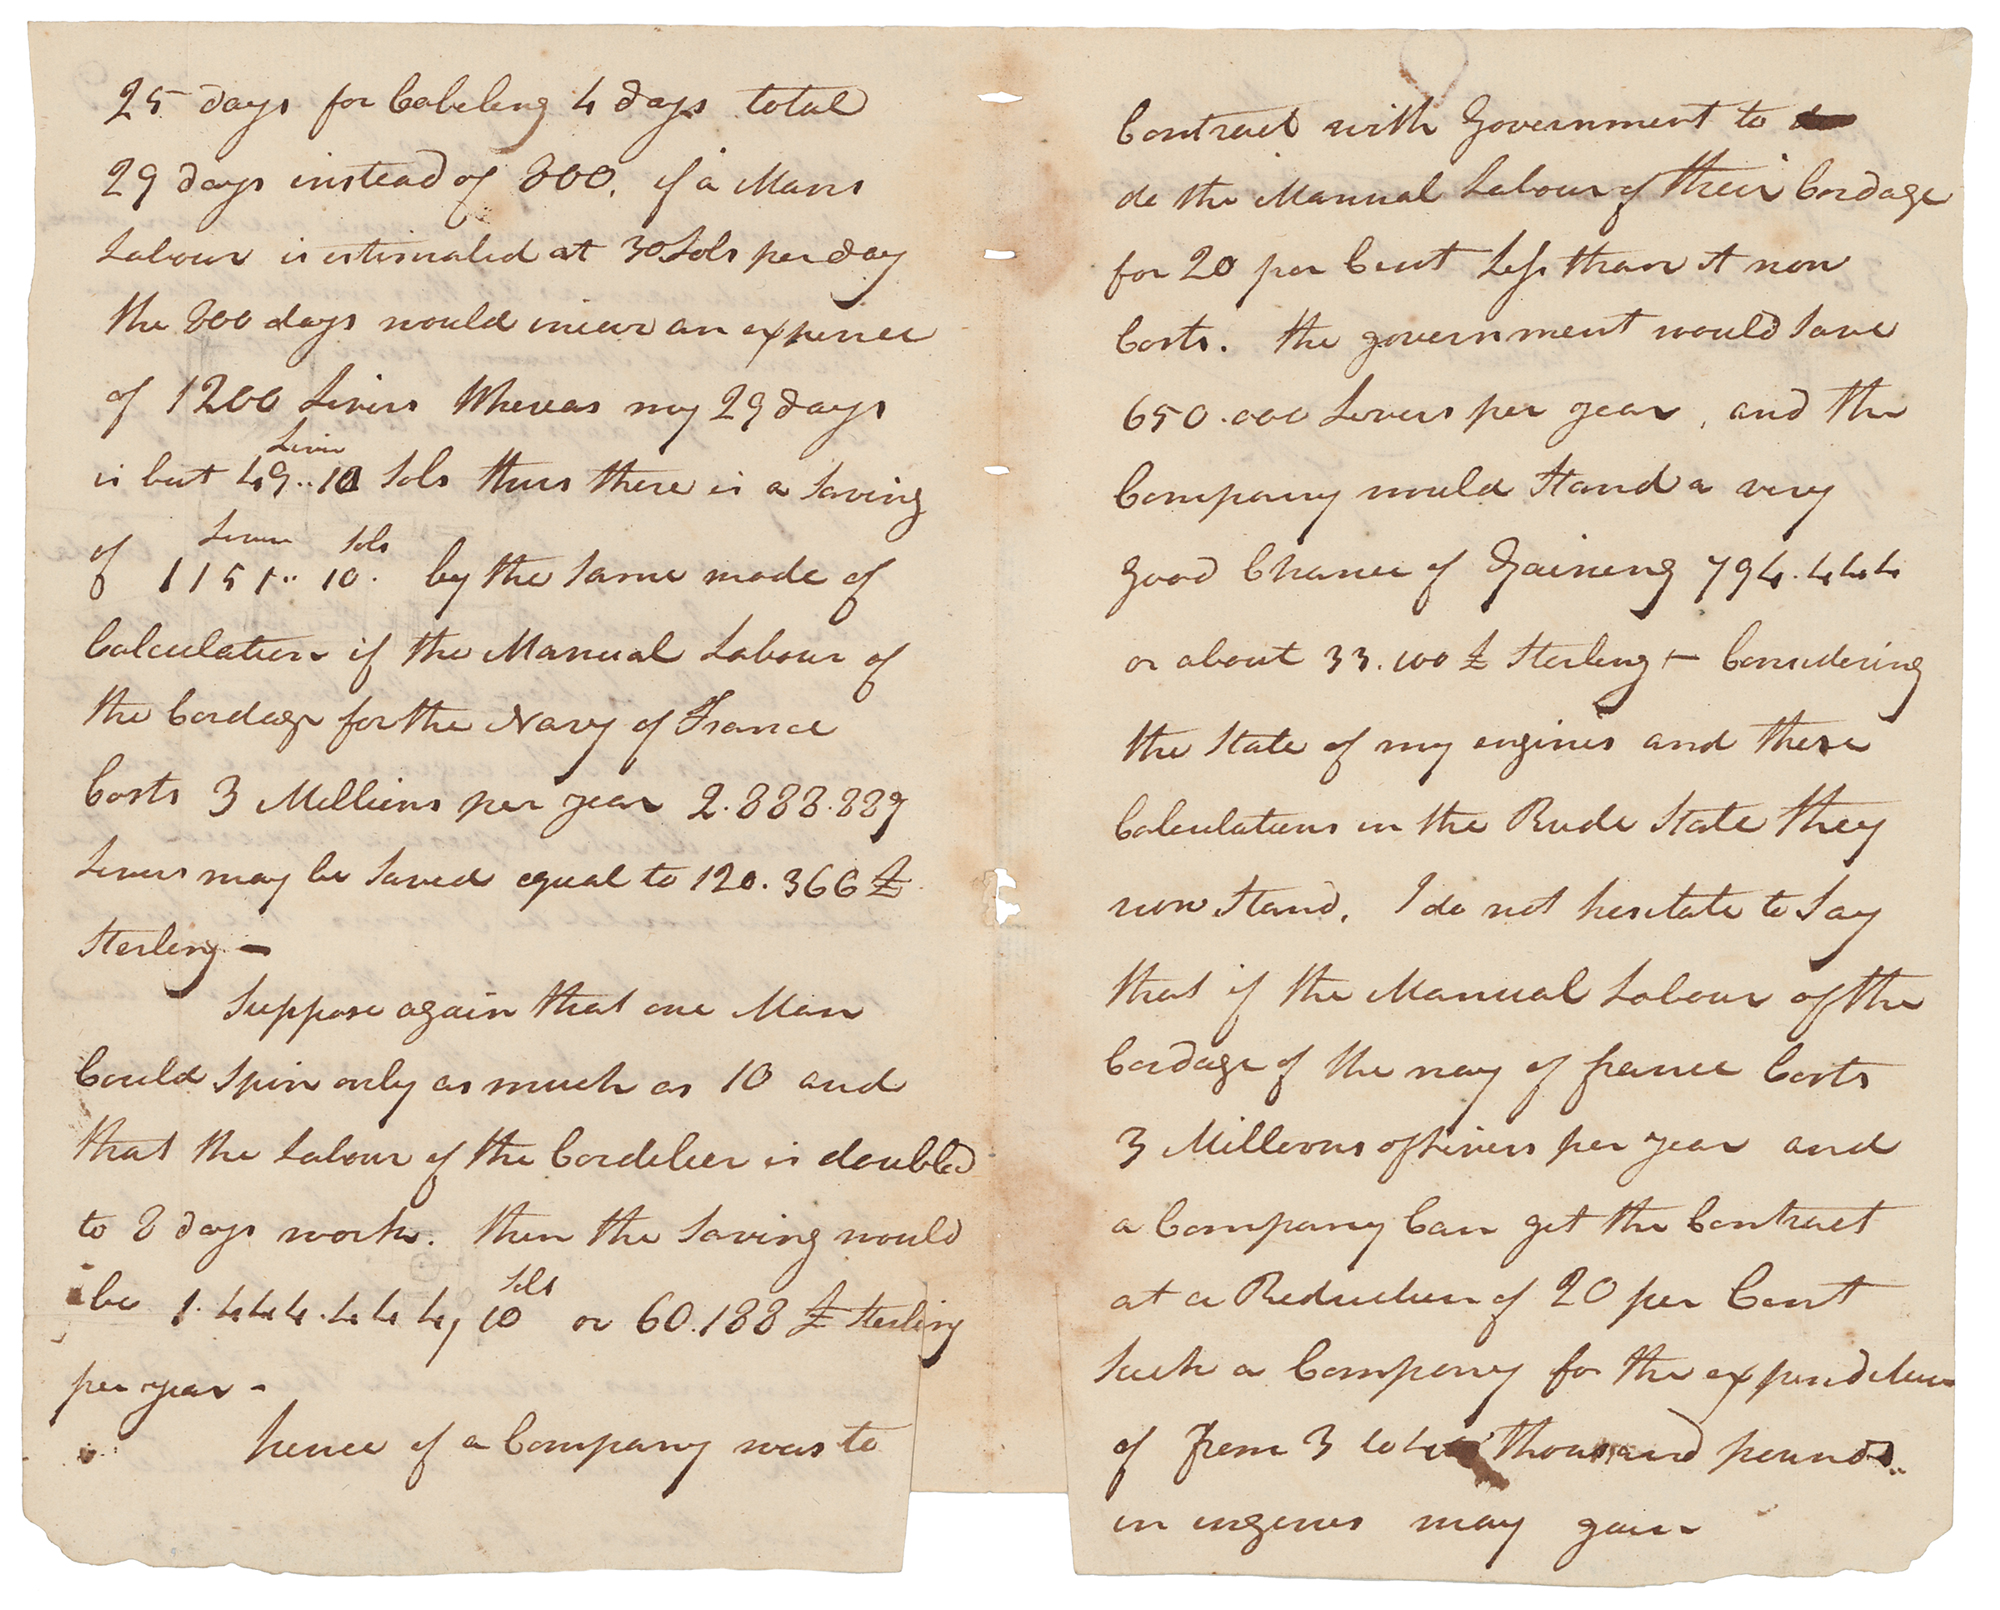 25 days for Cabeleng 4 days total
29 days instead of 800. if a Mans
Labour is estimated at 30 Sols per day
the 800 days would incur an expence
of 1200 Livers Whereas my 29 days
Livers
is but 49..10 Sols thus there is a Saving
Livers Sols
of 1151.. 10. by the Same mode of
Calculation if the Manual Labour of
the Cordage for the Navy of France
Costs 3 Millions per year 2.888.889
Livers may be Saved equal to 120.366 £
Sterling —
Suppose again that one Man
Could Spin only as much as 10 and
that the Labour of the Cordelier is doubled
to 8 days work. then the Saving would
Sols
be 1.444.444, 10 or 60.188 £ Sterling
per year -
hence if a Company was to
Contract with Government to
do the Manual Labour of their Cordage
for 20 per Cent Less than it now
Costs. the government would Save
650.000 Livers per year, and the
Company would Stand a very
good Chance of Gaineng 794.444
or about 33.100 £ Sterling — Considering
the State of my engines and these
Calculations in the Rude State they
now Stand. I do not hesitate to Say
that if the Manual Labour of the
Cordage of the navy of france Costs
3 Millions of Livers per year and
a Company Can get the Contract
at a Reduction of 20 per Cent
Such a Company for the expenditure
of from 3 to thousand pounds..
in engines may gain